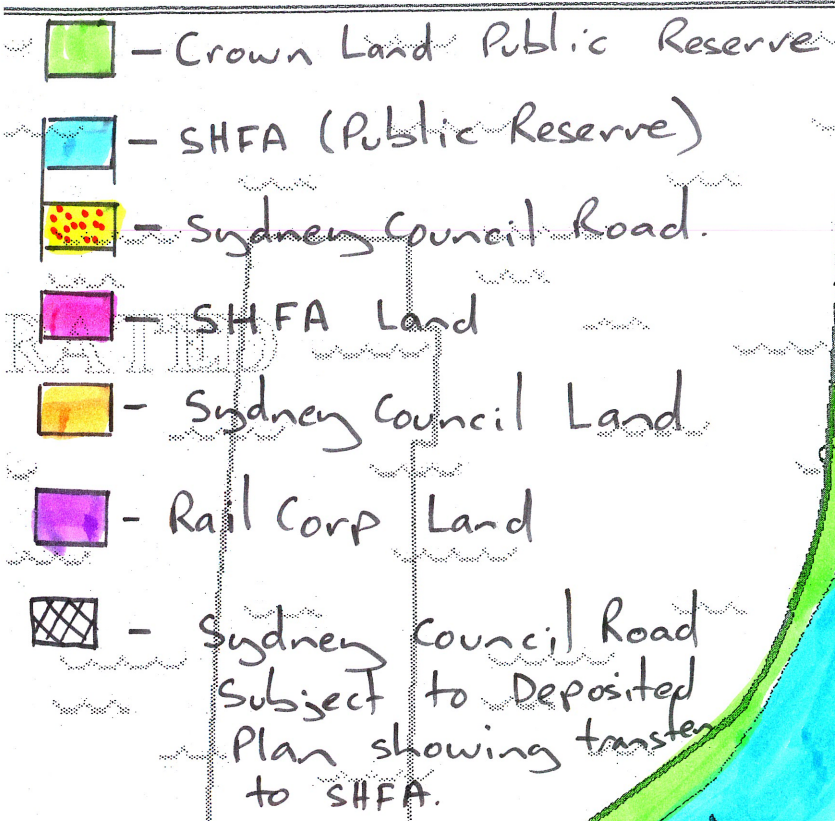 - Crown Land Public Reserve
- SHFA (Public Reserve)
- Sydney Council Road.
- SHFA Land
RATED
- Sydney Council Land
- Rail Corp Land
- Sydney Council Road
Subject to Deposited
Plan showing transfer
to SHFA.